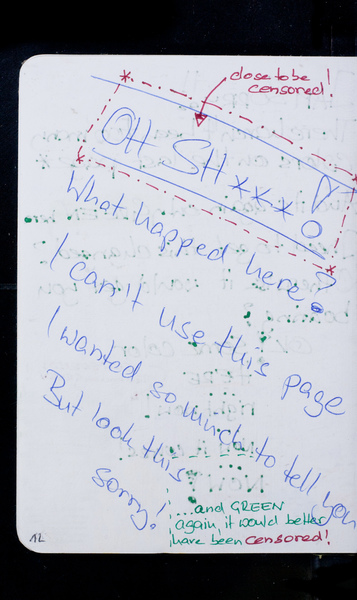 close to be
censored!
OH SH***!
What happed here?
I can't use this page
I wanted so much to tell you
But look this
sorry!
...and GREEN
again, it would better
have been censored!
12